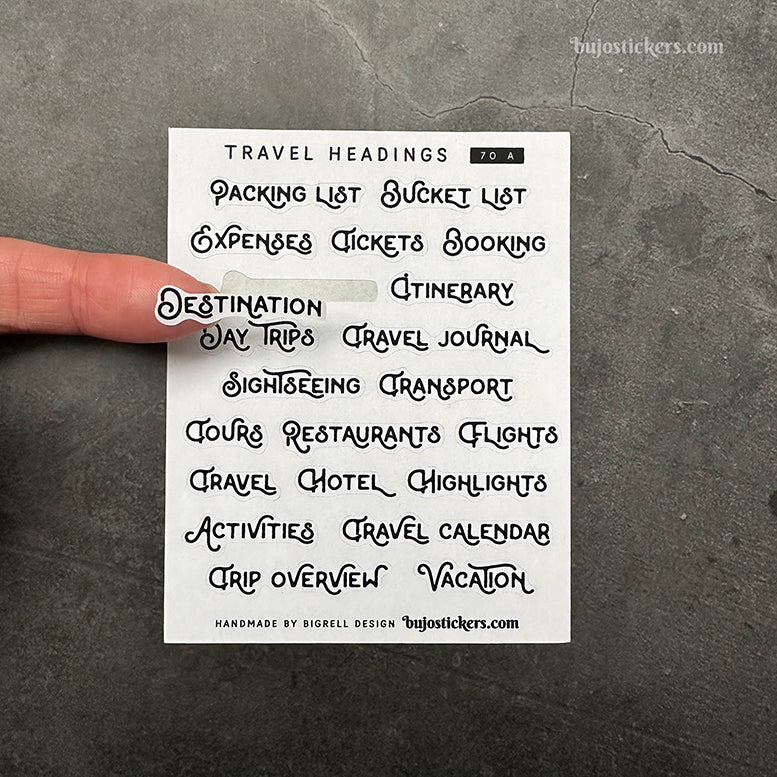 bujostickers.com
TRAVEL HEADINGS 70 A
PACKING LIST BUCKET LIST
EXPENSES TICKETS BOOKING
DESTINATION ITINERARY
DAY TRIPS TRAVEL JOURNAL
SIGHTSEEING TRANSPORT
TOURS RESTAURANTS FLIGHTS
TRAVEL HOTEL HIGHLIGHTS
ACTIVITIES TRAVEL CALENDAR
TRIP OVERVIEW VACATION
HANDMADE BY BIGRELL DESIGN bujostickers.com